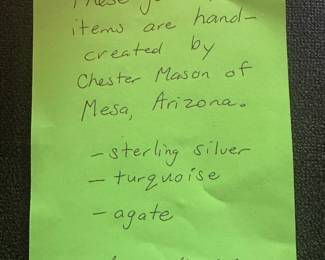 These
items are hand-
created by
Chester Mason of
Mesa, Arizona.
- sterling silver
- turquoise
- agate